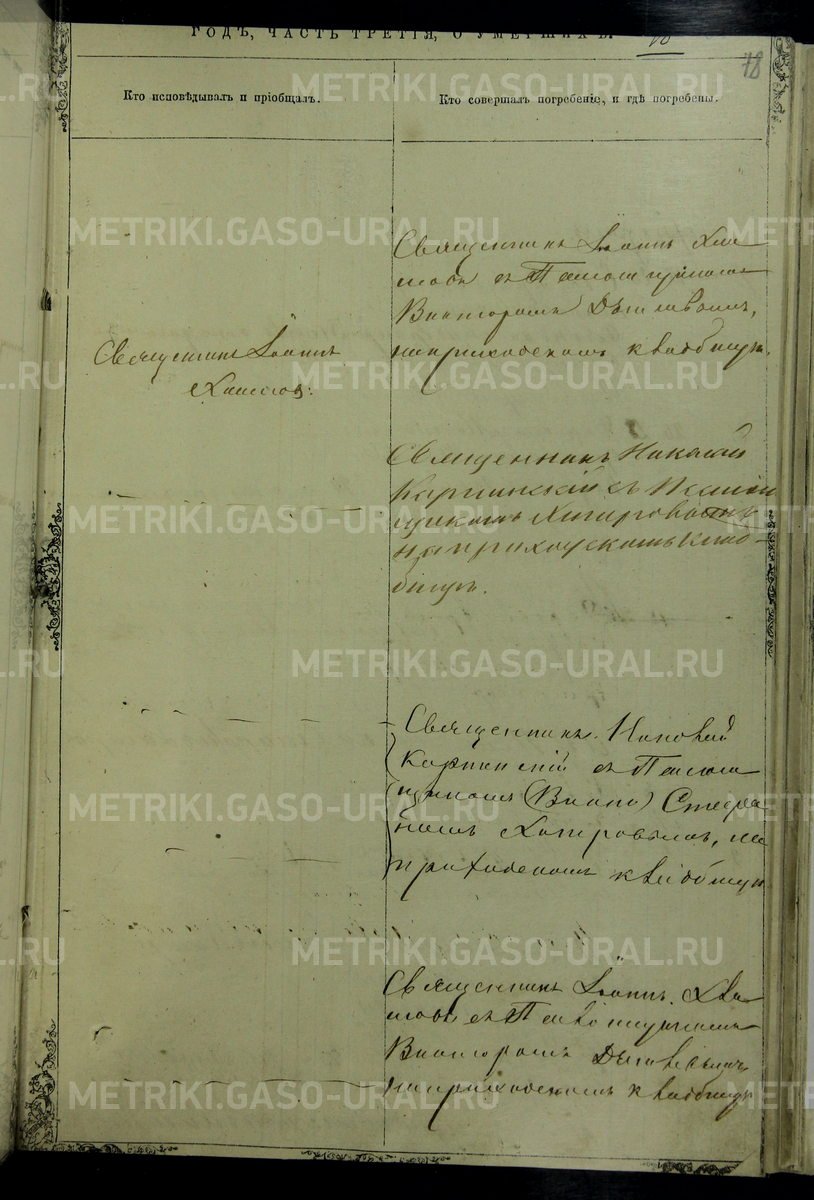 ГОДЪ, ЧАСТЬ ТРЕТІЯ, О УМЕРШИХЪ.
78
Кто исповѣдывалъ и пріобщалъ.
Кто совершалъ погребеніе, и гдѣ погребены.
Священникъ Іоаннъ
Священникъ Іоаннъ
съ Псаломщикомъ
Викторомъ
на приходскомъ кладбищѣ.
Священникъ Николай
Карпинскій съ Псалом
щикомъ Хитровымъ
на приходскомъ клад-
бищѣ.
Священникъ Николай
Карпинскій съ Псалом
щикомъ Стефа
номъ Хитровымъ, на
приходскомъ кладбищѣ
Священникъ Іоаннъ
съ Псаломщикомъ
Викторомъ
на приходскомъ кладбищѣ
METRIKI.GASO-URAL.RU